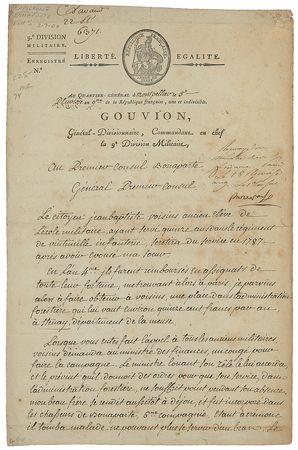 22
6371.
9e DIVISION
MILITAIRE.
ENREGISTRÉ
N.º
LIBERTÉ. EGALITÉ.
AU QUARTIER-GÉNÉRAL à montpellier le 5e
Pluviose an 9me de la République française, une et indivisible.
GOUVION,
Général-Divisionnaire, Commandant en chef
la 9e Division Militaire,
Au Premier Consul Bonaparte
Général Premier Consul
Le citoyen jean baptiste voisins ancien élève de
l'école militaire, ayant servi quinze ans dans le régiment
de vintimille infanterie, sortit du service en 1787
après avoir épousé ma soeur.
En l'an 4me ils furent remboursés en assignats de
toute leur fortune, me trouvant alors à paris je parvins
alors à faire obtenir à voisins, une place dans l'administration
forestière qui lui vaut environ quinze cent francs par an
à Stenay, département de la meuse.
Lorsque vous entes fait l'appel à tous les anciens militaires
voisins demanda, au ministre des finances, un congé pour
faire la campagne. Le ministre louant son zèle le lui accorda,
et le prévint qu'il donnoit des ordres pour que son service dans
l'administration forestière, ne souffrit point pendant son absence,
mon beau frère se rendit aussitôt à dijon, et fut incorporé dans
les chasseurs de Bonaparte, 6me compagnie, étant à crémone
il tomba malade, ne pouvant plus le service d'un beau Le